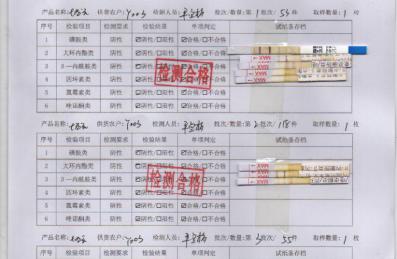 产品名称: 供货农户: Y005 检测人员: 批次/数量: 第1批次/ 55 件 取样数量: 1 枚
序号 检验项目 检测要求 检验结果 单项判定 试纸条存档
1 磺胺类 阴性 ☑阴性/☐阳性 ☑合格/☐不合格
2 大环内酯类 阴性 ☑阴性/☐阳性 ☑合格/☐不合格
3 β-内酰胺类 阴性 ☑阴性/☐阳性 ☑合格/☐不合格
4 四环素类 阴性 ☑阴性/☐阳性 ☑合格/☐不合格
5 氟霉素类 阴性 ☑阴性/☐阳性 ☑合格/☐不合格
6 喹诺酮类 阴性 ☑阴性/☐阳性 ☑合格/☐不合格
检测合格
MAX
MAX
产品名称: 供货农户: Y005 检测人员: 批次/数量: 第2批次/ 件 取样数量: 1 枚
序号 检验项目 检测要求 检验结果 单项判定 试纸条存档
1 磺胺类 阴性 ☑阴性/☐阳性 ☑合格/☐不合格
2 大环内酯类 阴性 ☑阴性/☐阳性 ☑合格/☐不合格
3 β-内酰胺类 阴性 ☑阴性/☐阳性 ☑合格/☐不合格
4 四环素类 阴性 ☑阴性/☐阳性 ☑合格/☐不合格
5 氟霉素类 阴性 ☑阴性/☐阳性 ☑合格/☐不合格
6 喹诺酮类 阴性 ☑阴性/☐阳性 ☑合格/☐不合格
检测合格
MAX
MAX
产品名称: 供货农户: Y005 检测人员: 批次/数量: 第 批次/ 55 件 取样数量: 1 枚